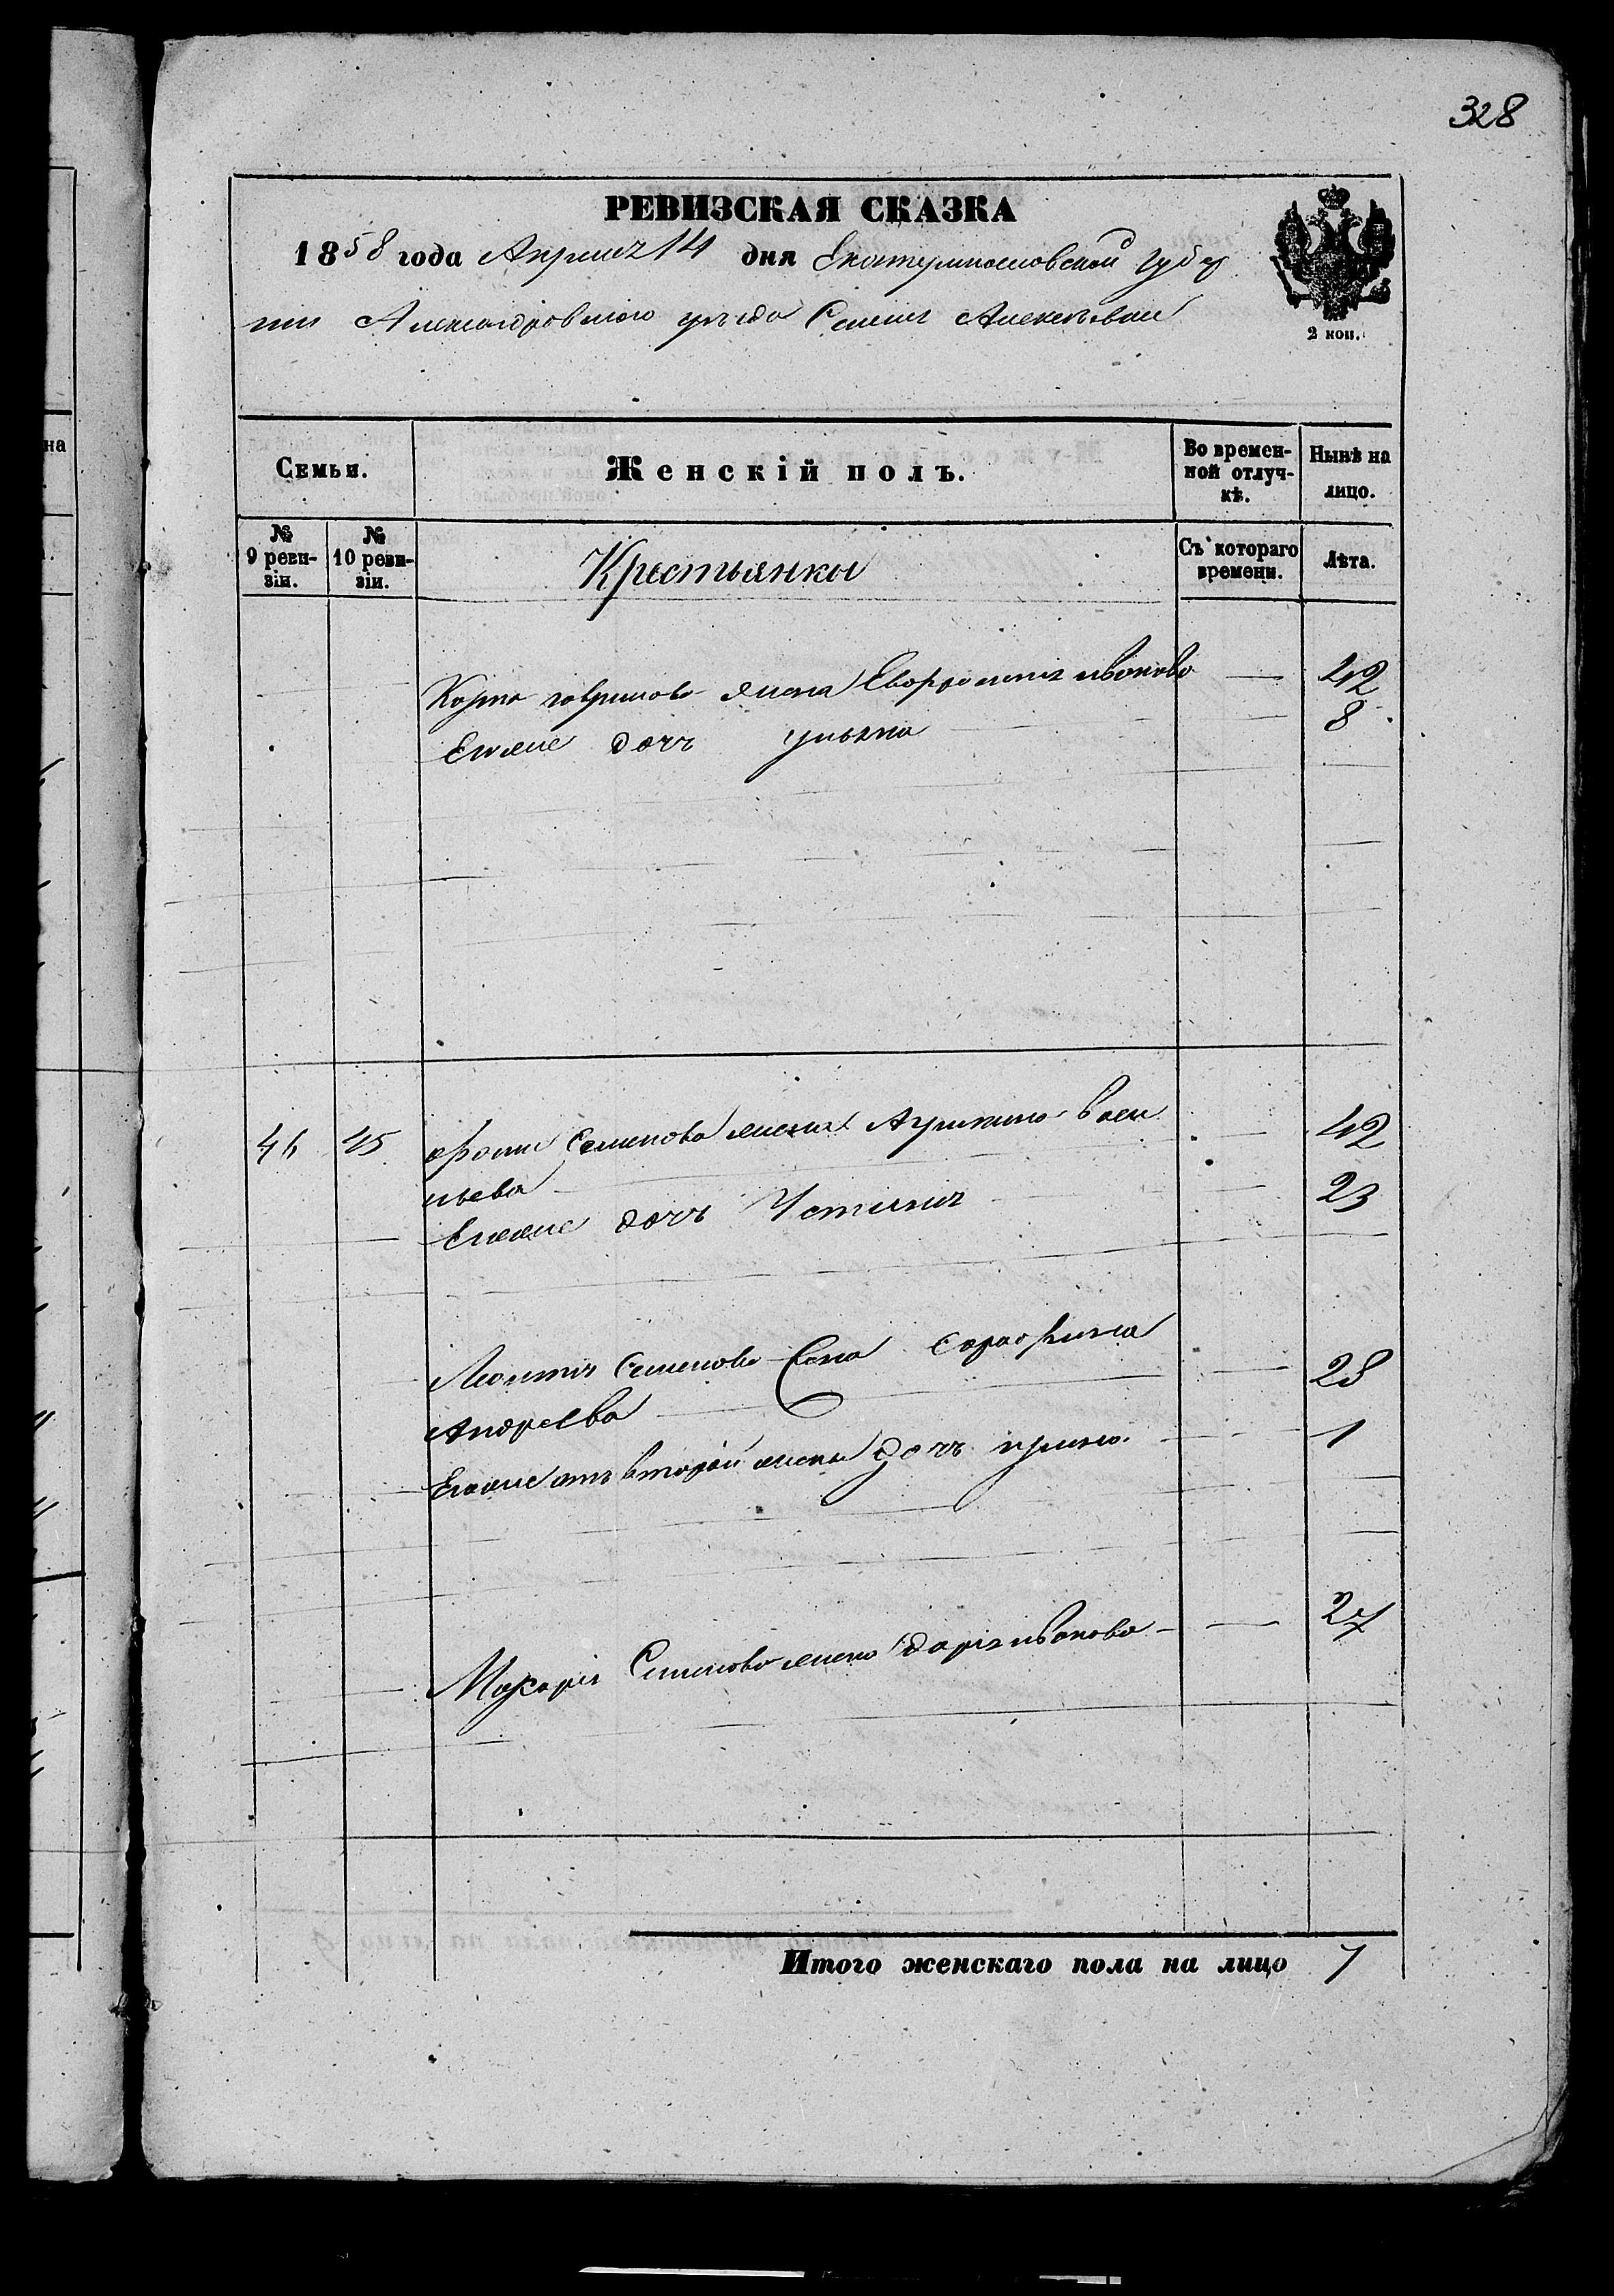 328
РЕВИЗСКАЯ СКАЗКА
1858 года Апреля 14 дня Екатеринославской губер
нии Александровского уезда Селения Алексеевки
2 коп.
Семьи.
Женскій полъ.
Во времен-
ной отлуч-
кѣ.
Нынѣ на
лицо.
№
9 реви-
зіи.
№
10 реви-
зіи.
Крестьянки
Съ котораго
времени.
Лѣта.
гаврилова жена Евфросиния иванова — 42
Егоже дочь ульяна 8
45 Семенова жена Агрипина васи 42
льева
Егоже дочь Устиния 23
Леонтия Семенова Серафима 28
Андреева
Егоже отъ второй жены дочь ирина 1
Макария Семенова жена дария иванова — 27
Итого женскаго пола на лицо 7
на